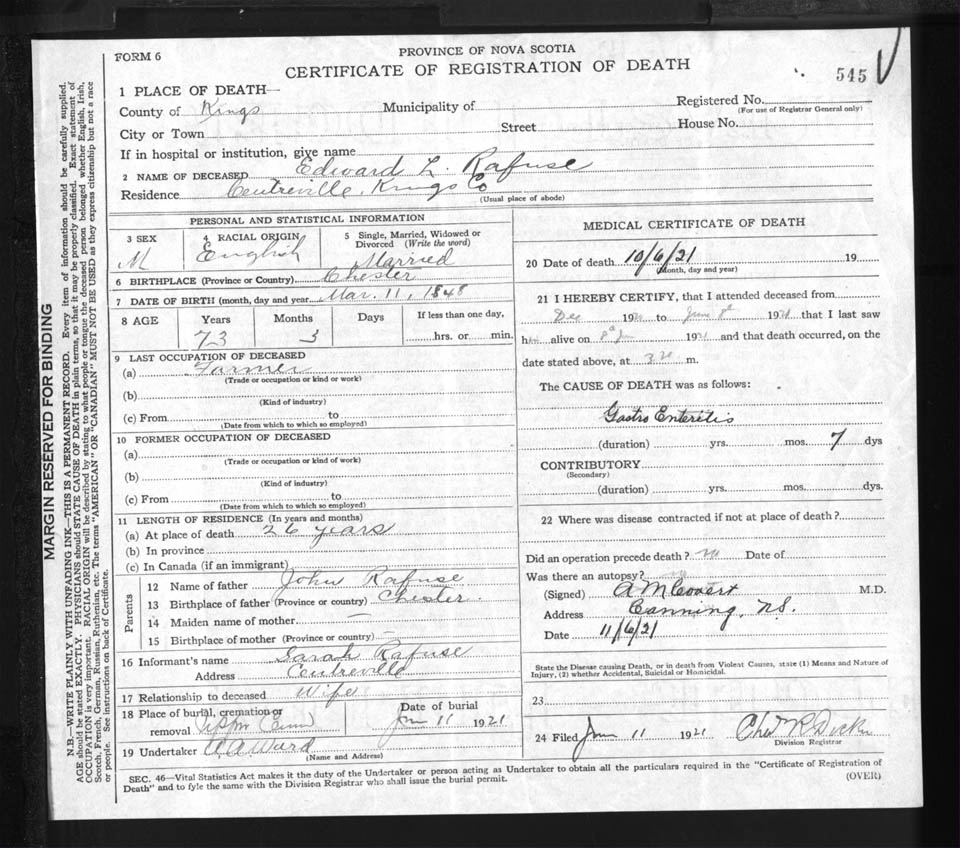 FORM 6
PROVINCE OF NOVA SCOTIA
CERTIFICATE OF REGISTRATION OF DEATH
545
1 PLACE OF DEATH—
County of Kings Municipality of
Registered No.
(For use of Registrar General only)
City or Town Street House No.
If in hospital or institution, give name
2 NAME OF DECEASED Edward L. Rafuse
Residence Centreville, Kings Co
(Usual place of abode)
PERSONAL AND STATISTICAL INFORMATION
3 SEX
M
4 RACIAL ORIGIN
English
5 Single, Married, Widowed or Divorced (Write the word)
Married
6 BIRTHPLACE (Province or Country) Chester
7 DATE OF BIRTH (month, day and year Mar. 11, 1848
8 AGE Years Months Days If less than one day,
73 3 hrs. or min.
9 LAST OCCUPATION OF DECEASED
(a) Farmer
(Trade or occupation or kind or work)
(b)
(Kind of industry)
(c) From to
(Date from which to which so employed)
10 FORMER OCCUPATION OF DECEASED
(a)
(Trade or occupation or kind of work)
(b)
(Kind of industry)
(c) From to
(Date from which to which so employed)
11 LENGTH OF RESIDENCE (In years and months)
(a) At place of death 26 years
(b) In province
(c) In Canada (if an immigrant)
Parents
12 Name of father John Rafuse
13 Birthplace of father (Province or country) Chester
14 Maiden name of mother —
15 Birthplace of mother (Province or country) —
16 Informant's name Sarah Rafuse
Address Centreville
17 Relationship to deceased Wife
18 Place of burial, cremation or removal
Date of burial
11 1921
19 Undertaker A.A. Ward
(Name and Address)
MEDICAL CERTIFICATE OF DEATH
20 Date of death 10/6/21 19
(Month, day and year)
21 I HEREBY CERTIFY, that I attended deceased from
Dec 19 to June 8th 1921 that I last saw
him alive on 8th 1921 and that death occurred, on
date stated above, at m.
The CAUSE OF DEATH was as follows:
Gastro Enteritis
(duration) yrs. mos. 7 dys
CONTRIBUTORY
(Secondary)
(duration) yrs. mos. dys.
22 Where was disease contracted if not at place of death?
Did an operation precede death? no Date of
Was there an autopsy?
(Signed) A M Covert M.D.
Address Canning, N.S.
Date 11/6/21
State the Disease causing Death, or in death from Violent Causes, state (1) Means and Nature of
Injury, (2) whether Accidental, Suicidal or Homicidal.
23
24 Filed 11 1921
Division Registrar
SEC. 46—Vital Statistics Act makes it the duty of the Undertaker or person acting as Undertaker to obtain all the particulars required in the "Certificate of Registration of
Death" and to fyle the same with the Division Registrar who shall issue the burial permit.
(OVER)
MARGIN RESERVED FOR BINDING
N.B.—WRITE PLAINLY WITH UNFADING INK—THIS IS A PERMANENT RECORD. Every item of information should be carefully supplied.
AGE should be stated EXACTLY. PHYSICIANS should STATE CAUSE OF DEATH in plain terms, so that it may be properly classified. Exact statement of
OCCUPATION is very important. RACIAL ORIGIN will be described by stating to what people or tongue the deceased person belonged whether English, Irish,
Scotch, French, German, Russian, Ruthenian, etc. The terms "AMERICAN" OR "CANADIAN" MUST NOT BE USED as they express citizenship but not a race
or people. See instructions on back of Certificate.